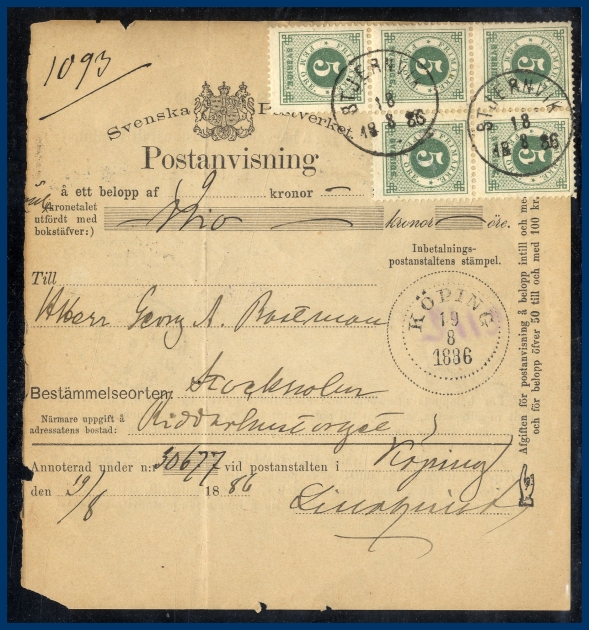 1093
5 5 5
FEM ÖRE SVERIGE
5 5
STJERNVIK
18 8 86
STJERNVIK
18 8 86
Svenska Postverket.
Postanvisning
å ett belopp af kronor —
(kronetalet
utfördt med
bokstäfver:) kronor öre.
Inbetalnings-
postanstaltens stämpel.
Till
Herr Georg A.
KÖPING
19
8
1886
Bestämmelseorten: Stockholm
Närmare uppgift å
adressatens bostad: Riddarhustorget
Annoterad under n:r 30677 vid postanstalten i Köping
den 19/8 1886
Lindqvist
Afgiften för postanvisning å belopp intill och med
och för belopp öfver 50 till och med 100 kr.